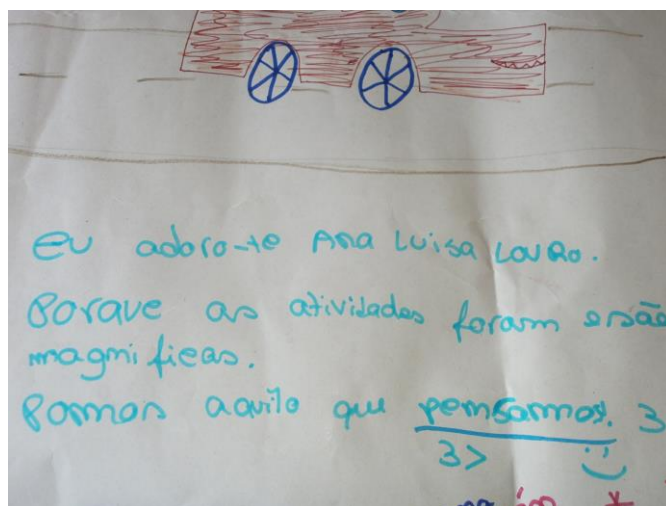 eu adoro-te Ana Luisa Louro.
Porque as atividades foram e são
magnificas.
Somos aquilo que pensamos. 3
3> :)